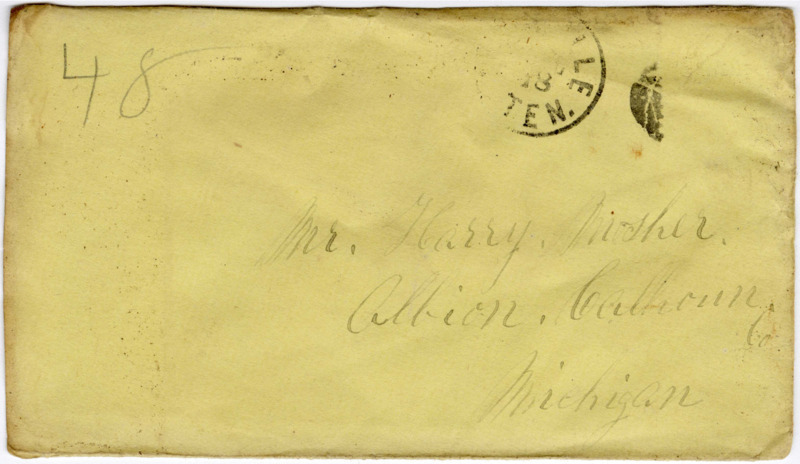 48
LE
18
TEN.
Mr. Harry Mosher.
Albion. Calhoun
Co
Michigan